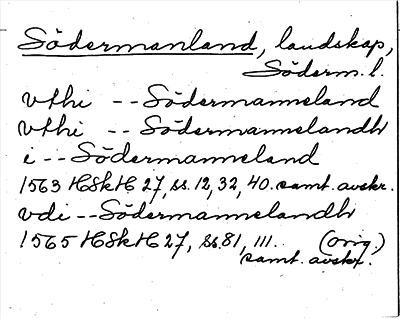 Södermanland, landskap,
Söderm. l.
vthi -- Södermanneland
vthi -- Södermannelandh
i -- Södermanneland
1563 HSkH 27, ss. 12, 32, 40. samt. avskr.
vdi -- Södermannelandh
1565 HSkH 27, ss. 81, 111. (orig.)
samt. avskr.